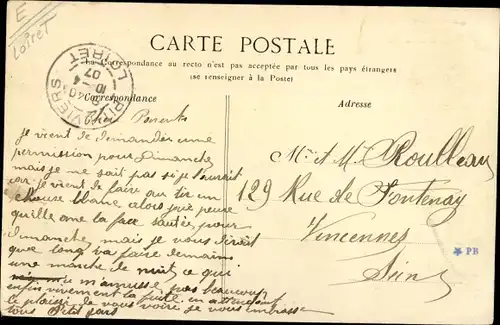 E
Loiret
CARTE POSTALE
La Correspondance au recto n'est pas acceptée par tous les pays étrangers
(se renseigner à la Poste)
Correspondance
Adresse
PITHIVIERS
LOIRET
07
Chers Parents
je vient de demander une
permission pour Dimanche
mais je ne sait pas si je l'aurait
car je vient de faire au tir un
chouse blanc alors que
qu'ille ame la face sautée pour
dimanche mais je vous dirait
que long va faire demain
une marche de nuit ce qui
m'amusse pas beaucoup
enfin vivement la fuite en attendant
le plaisir de vous voire je vous embrasse
tous Petit gars
Mr. et M. Roulleau
129 Rue de Fontenay
Vincennes
Seine
PB